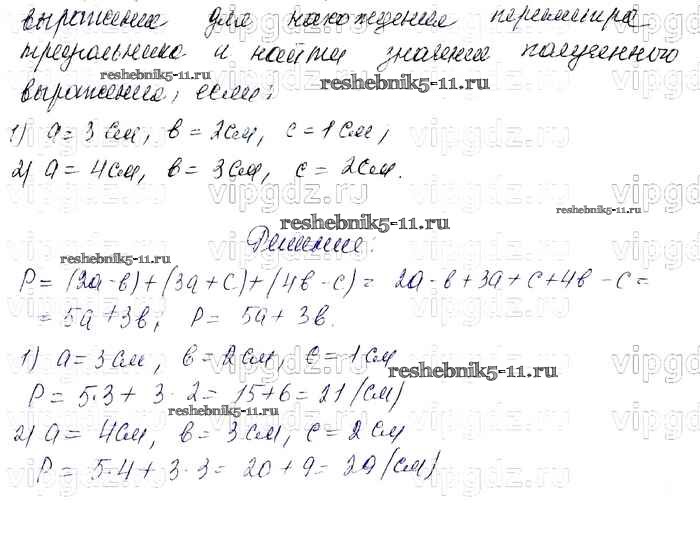 выражение для нахождения периметра
треугольника и найти значения полученного
reshebnik5-11.ru
выражения, если:
reshebnik5-11.ru
1) a = 3 см, в = 2 см, c = 1 см;
2) a = 4 см, в = 3 см, c = 2 см.
vipgdz.ru vipgdz.ru vipgdz.ru
reshebnik5-11.ru
reshebnik5-11.ru
Решение:
reshebnik5-11.ru
P = (2a - в) + (3a + c) + (4в - c) = 2a - в + 3a + c + 4в - c =
= 5a + 3в; P = 5a + 3в.
1) a = 3 см, в = 2 см, c = 1 см
reshebnik5-11.ru
P = 5·3 + 3·2 = 15 + 6 = 21 (см)
reshebnik5-11.ru
2) a = 4 см, в = 3 см, c = 2 см
P = 5·4 + 3·3 = 20 + 9 = 29 (см)